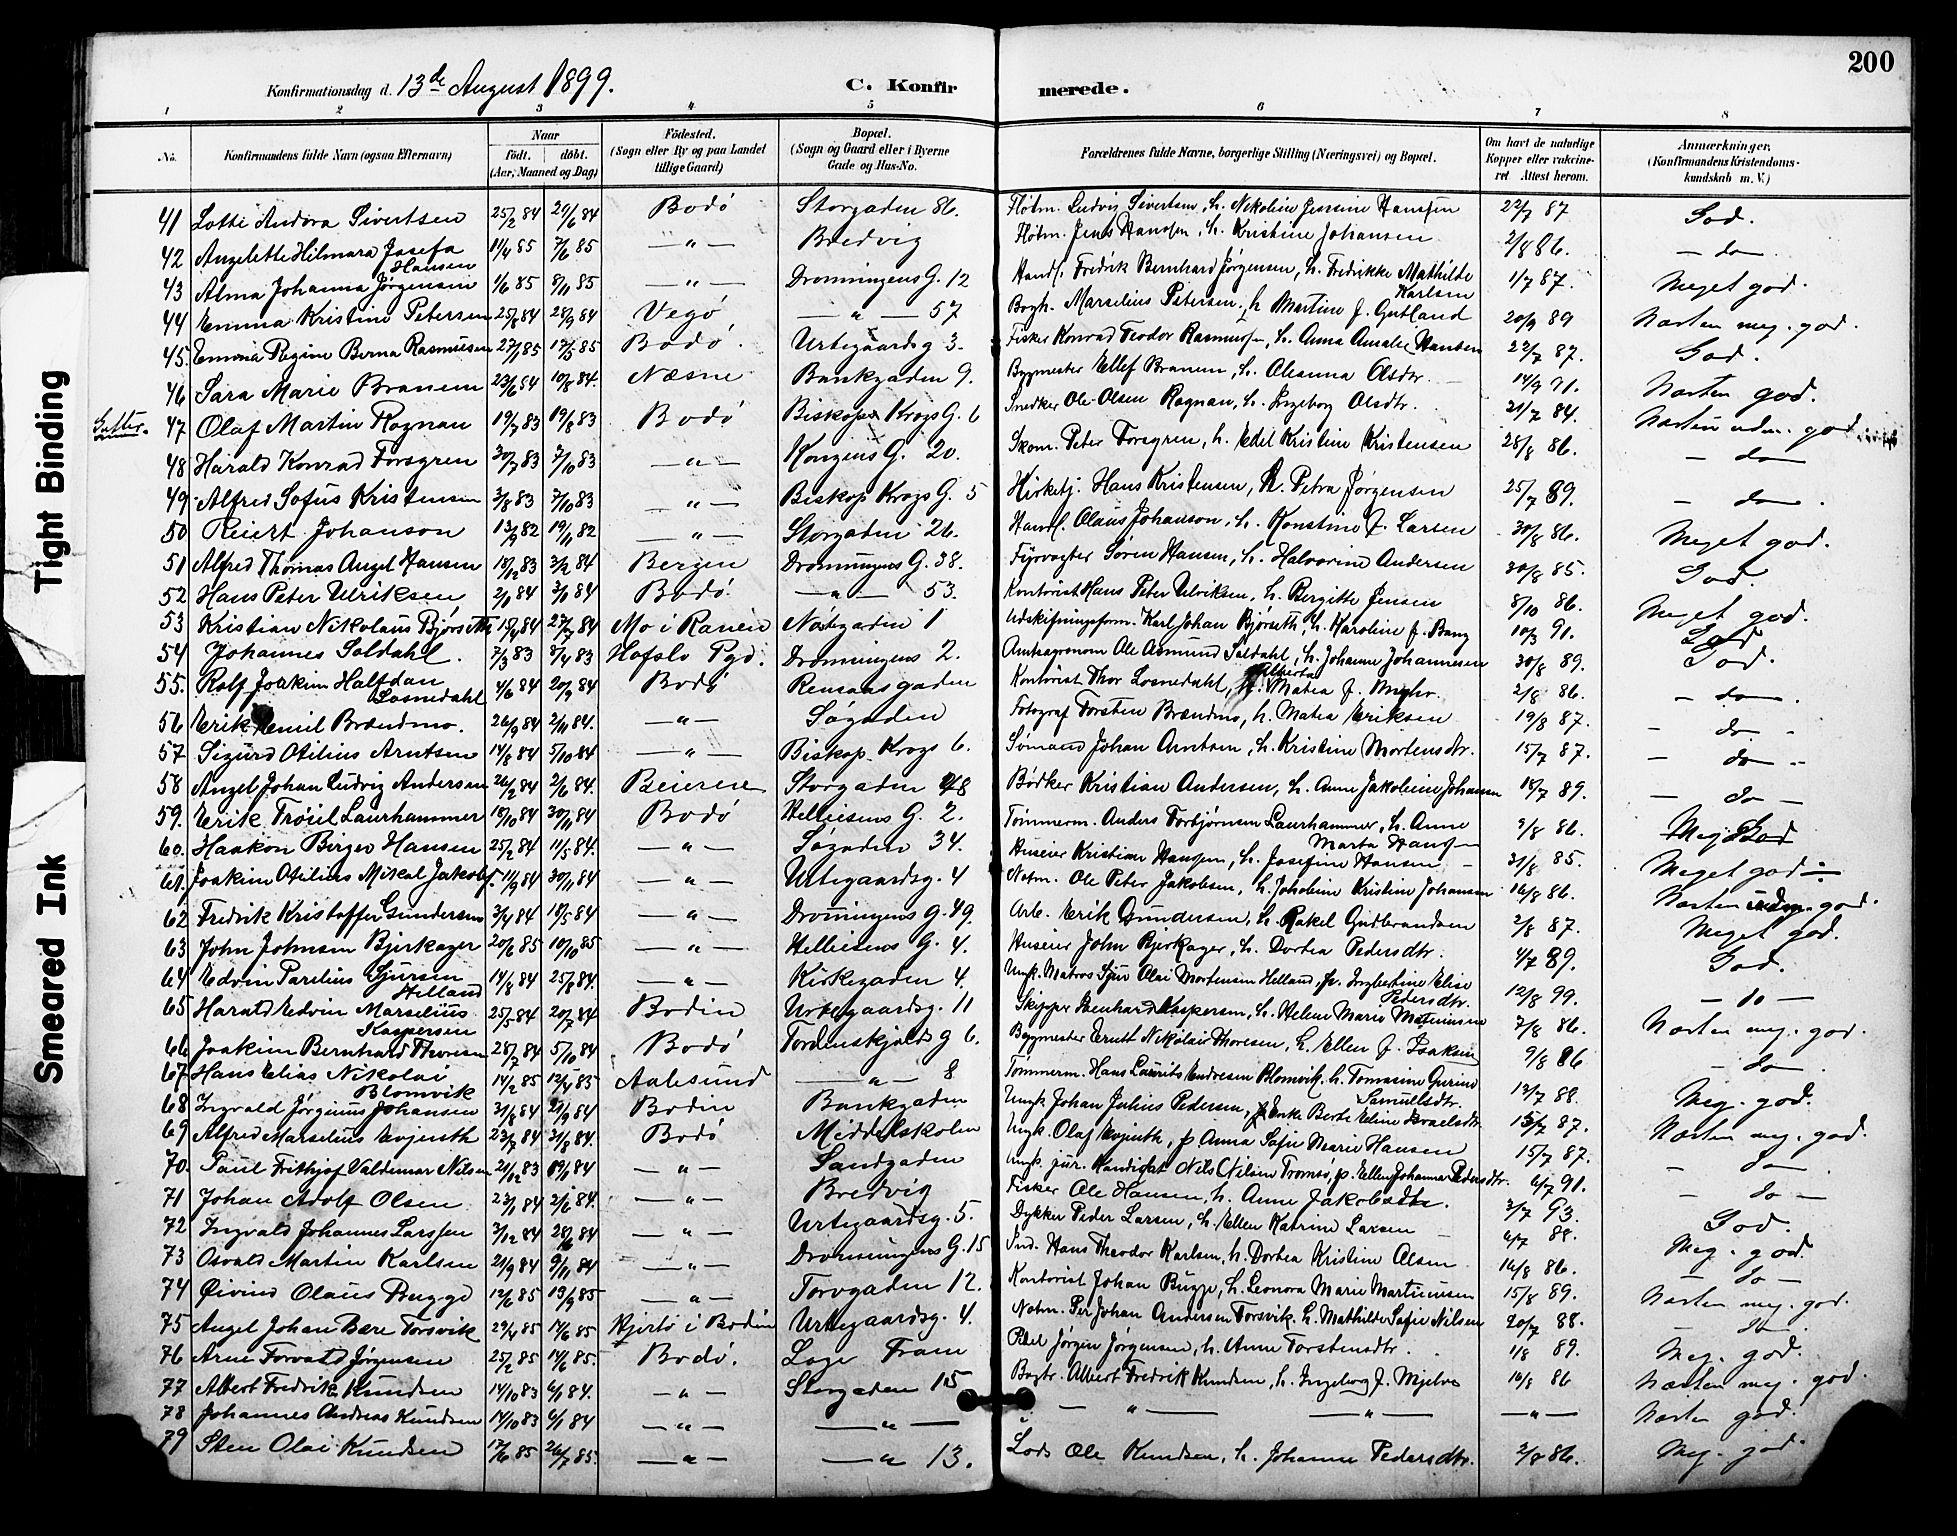 200
Konfirmationsdag d. 13de August 1899. C. Konfirmerede.
1 2 3 4 5 6 7 8
No. Konfirmandens fulde Navn (ogsaa Efternavn) Naar født. døbt. (Aar, Maaned og Dag) Fødested. (Sogn eller By og paa Landet tillige Gaard) Bopæl. (Sogn og Gaard eller i Byerne Gade og Hus-No. Forældrenes fulde Navne, borgerlige Stilling (Næringsvei) og Bopæl. Om havt de naturlige Kopper eller vakcineret Attest herom. Anmærkninger. (Konfirmandens Kristendomskundskab m. V.)
Tight Binding
Smeared Ink
Gutter.
41 Lotte Andora Sivertsen 25/2 84 29/6 84 Bodø Storgaden 86. Fløtm. Ludvig Sivertsen, h. Nikoline Jensine Hanssen 22/7 87 God.
42 Angelette Hilmara Josefa Hansen 11/4 85 7/6 85 — " — Bredvig Fløtm. Jens Hanssen, h. Kristine Johansen 2/8 86. — do — .
43 Alma Johanna Jørgensen 1/6 85 8/11 85 — " — Dronningens G. 12 Handl. Fredrik Bernhard Jørgensen, h. Fredrikke Mathilde Karlsen 1/7 87. Meget god.
44 Emma Kristine Petersen 25/8 84 28/9 84 Vegø — " — 57 Bogh. Marselius Petersen, h. Martine f. Gutland 20/9 89 Næsten meg. god.
45. Emma Regine Berna Rasmusen 27/1 85 17/5 85 Bodø. Urtegaardsg 3. Fisker Konrad Teodor Rasmussen, h. Anna Amalie Hansen 22/7 87. God.
46 Sara Marie Branem 23/6 84 10/8 84. Næsne Bankgaden 9. Bygmester Ellef Branem, h. Oleanna Olsdtr. 14/9 91. Næsten god.
47 Olaf Martin Rognan 19/7 83 19/8 83 Bodø Biskop Krogs G. 6 Snedker Ole Olsen Rognan, h. Ingeborg Olsdtr. 21/7 84. Næsten udm. god
48 Harald Konrad Forsgren 30/7 83 7/10 83 — " — Kongens G. 20. Skom. Peter Forsgren, h. Edel Kristine Kristensen 28/8 86. — do —
49 Alfred Sofus Kristensen 3/8 83 7/10 83 — " — Biskop Krogs G. 5 Kirketj. Hans Kristensen, h. Petra Jørgensen 25/7 89. — do — .
50 Reiert Johanson 13/9 82 19/11 82 — " — Storgaden 26. Handl. Olaus Johanson, h. Konstine f. Larsen 30/8 86. Meget god.
51 Alfred Thomas Angel Hansen 18/12 83 3/2 84 Bergen Dronningens G. 38. Fyrvogter Søren Hansen, h. Halvorine Andersen 30/8 85. God.
52 Hans Peter Ulriksen 2/1 84 3/1 84 Bodø. — " — 53. Kontorist Hans Peter Ulriksen, h. Bergitte Jensen 8/10 86. Meget god.
53 Kristian Nikolaus Bjørseth 15/4 84 27/7 84 Mo i Ranen Nøstgaden 1 Udskiftningsform. Karl Johan Bjørseth, h. Haroline f. Bang 10/3 91. God
54 Johannes Soldahl. 7/3 83 8/4 83 Hafslo Pgd. Dronningens 2. Amtsagronom Ole Asmund Soldahl, h. Johanne Johannesen 30/8 89. God.
55. Rolf Joakim Halfdan Losnedahl 4/6 84 20/9 84 Bodø Rensaasgaden Kontorist Thor Losnedahl, h. Alberta Matea f. 2/8 86. — do — .
56 Erik Emil Brændmo. 26/9 84 2/11 84. — " — Søgaden Fotograf Torsten Brændmo, h. Matea Eriksen 19/8 87. — do — .
57 Sigurd Otilius Arntsen 14/8 84 5/10 84 — " — Biskop Krogs 6. Sømand Johan Arntsen, h. Kristine Mortensdtr. 15/7 87. — do —
58 Angel Johan Ludvig Andersen 26/2 84 2/6 84. Beieren Storgaden 48 Bødker Kristian Andersen, h. Anne Jakobine Johansen 18/7 89. — do —
59. Erik Trøiel Laurhammer 18/10 84 30/11 84 Bodø Helliesens G. 2. Tømmerm. Anders Torbjørnsen Laurhammer, h. Anne Marta Hanss— 9/8 86. Meg. God
60. Haakon Birger Hansen 25/2 84 11/5 84. — " — Søgaden 34. Huseier Kristian Hanssen, h. Josefine Hansen 31/8 85. Meget god
61. Joakim Otilius Mikal Jakobs. 11/9 84 30/11 84 — " — Urtegaardsg. 4 Notm. Ole Peter Jakobsen, h. Jakobine Kristine Johansen 16/8 86. Næsten udm. god.
62 Fredrik Kristoffer Gundersen 3/4 84 18/5 84 — " — Dronningens G. 49. Arb. Erik Gundersen, h. Rakel Gudbrandsen 2/8 87. Meget god.
63 John Johnsen Bjerkager 20/6 85 10/10 85 — " — Helliesens G. 4. Huseier John Bjerkager, h. Dortea Pedersdtr. 4/7 89. God.
64 Edvin Parelius Sjursen Helland 14/8 84 25/8 84. — " — Kirkegaden 4. Ungk. Matros Sjur Olai Mortensen Helland, p. Ingbertine Elise Pedersdtr. 12/8 99. — do —
65 Harald Edvin Marselius Kaspersen 25/5 84 20/7 84 Bodin Urtegaardsg. 11 Skipper Kaspersen, h. Helene Marie 7/8 86. Næsten meg. god.
66 Joakim Bernhard Thoresen 28/7 84 5/10 84 Bodø Tordenskjolds g 6. Bygmester Ernst Nikolai Thoresen, h. Ellen f. Isaksen 9/8 86 — do — .
67 Hans Elias Nikolai Blomvik 14/2 85 12/4 85 Aalesund — " — 8 Tømmerm. Hans Laurits Endresen Blomvik. h. Tomasine Gurine Samuelsdtr. 12/7 88. Meg. god.
68 Ingvald Jørginus Johansen 31/8 84 21/9 84 Bodin Bankgaden Ungk Johan Julius Pedersen, Enke Berte Eline Israelsdtr. 15/7 87. Næsten meg. god.
69 Alfred Marselius Evjenth 23/7 84 31/8 84. Bodø Middelskolen Ungk. Olaf Evjenth, p Anna Sofie Marie Hansen 15/7 87. — do —
70. Paul Frithjof Valdemar Nilsen 21/12 83 19/1 84 — " — Sandgaden Ungk. jur. Kandidat Nils Nilsen Tromsø, p. Ellen Johanna Pedersdtr. 6/7 91. — do —
71 Johan Adolf Olsen 23/1 84 2/6 84. — " — Bredvig Fisker Ole Hansen, h. Anne Jakobsdtr. 3/7 93. God.
72 Ingvald Johannes Larssen 3/12 84 28/6 84 — " — Urtegaardsg. 5. Dykker Peder Larsen, h. Ellen Katrine Larsen 4/7 88. Meg. god.
73 Osvald Martin Karlsen 21/9 84 9/11 84 — " — Dronningens G. 15 Snd. Hans Theodor Karlsen, h. Dortea Kristine Olsen 16/8 86. — do —
74 Øivind Olaus Bugge 12/6 85 13/9 85 — " — Torvgaden 12. Kontorist Johan Bugge, h. Leonora Marie Martinusen 15/8 89. Næsten meg. god.
75 Angel Johan Bare Torsvik 29/4 85 14/6 85 Hjertø i Bodin Urtegaardsg. 4. Notm. Per Johan Andersen Torsvik. h. Mathilde Sofie Nilsen 20/7 88. — do —
76 Arne Torvald Jørgensen 25/2 85 14/6 85. Bodø. Loge Fram Pedel Jørgen Jørgensen, h. Anne Torstensdtr. 1/8 89. Meg. god.
77 Albert Fredrik Knudsen 14/10 83 6/1 84. — " — Storgaden 15 Bogtr. Albert Fredrik Knudsen, h. Ingeborg f. Mjelve 16/8 86 Næsten meg. god.
78 Johannes Andreas Knudsen 14/10 83 6/1 84 — " — — " — — " — — " — — " — Næsten god.
79 Sten Olai Knudsen 17/6 85 26/7 85. — " — — " — 13. Lods Ole Knudsen, h. Johanne Pedersdtr. 3/8 86. Meg. god.